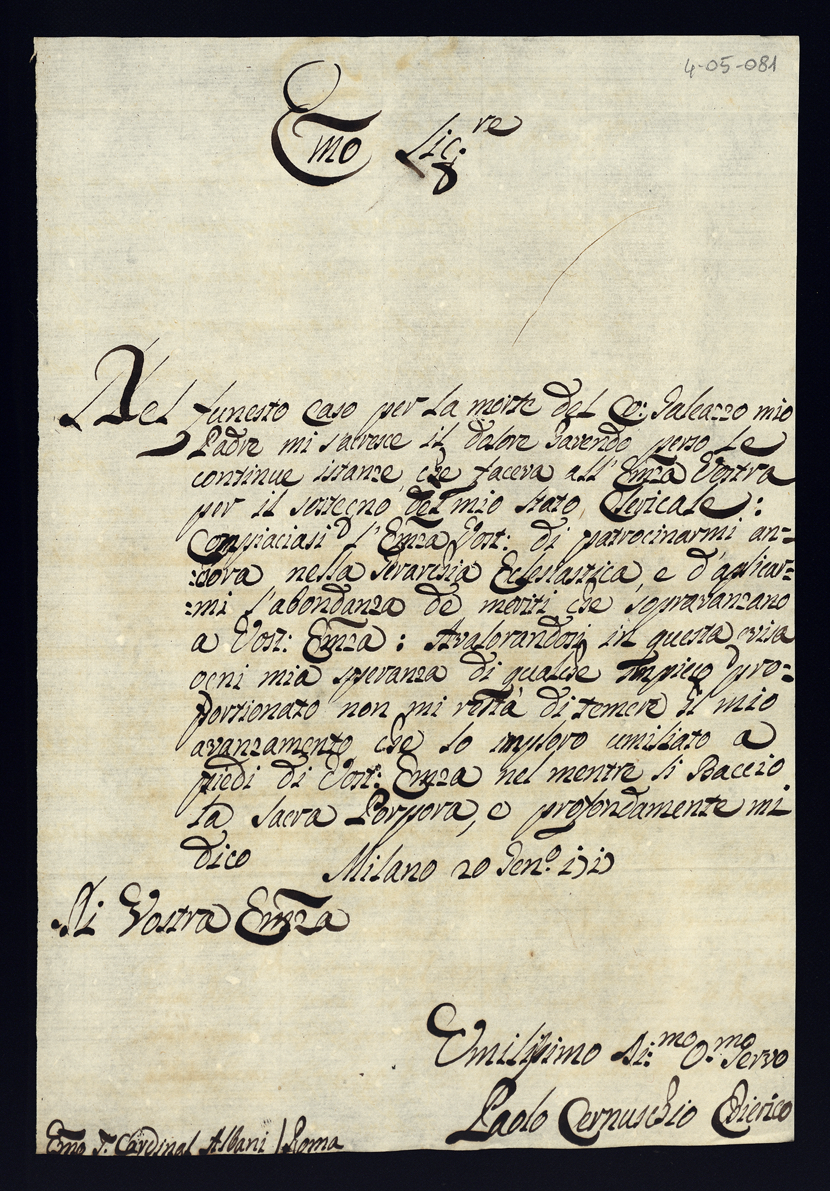 4-05-081
Emo Sig.re
Nel funesto caso per la morte del Co: Galeazzo mio
Padre mi s'acresce il dolore havendo perso le
continue istanze che faceva all' Emza Vostra
per il sostegno del mio stato Clericale:
Compiaciasi l'Emza Vost: di patrocinarmi an=
=cora nella Gerarchia Eclesiastica, e d'aplicar=
=mi l'abondanza de meriti che sopravanzano
a Vost: Emza: Avalorandosi in questa guisa
ogni mia speranza di qualche Impiego pro=
portionato non mi restà di temere il mio
avanzamento che lo imploro umiliato a
piedi di Vost: Emza nel mentre li Baccio
la Sacra Porpora, e profondamente mi
dico Milano 20 Gen.o
Di Vostra Emza
Umilissimo Di:mo O:mo Servo
Paolo Cernuschio Chierico
Emo Sr. Cardinal Albani / Roma